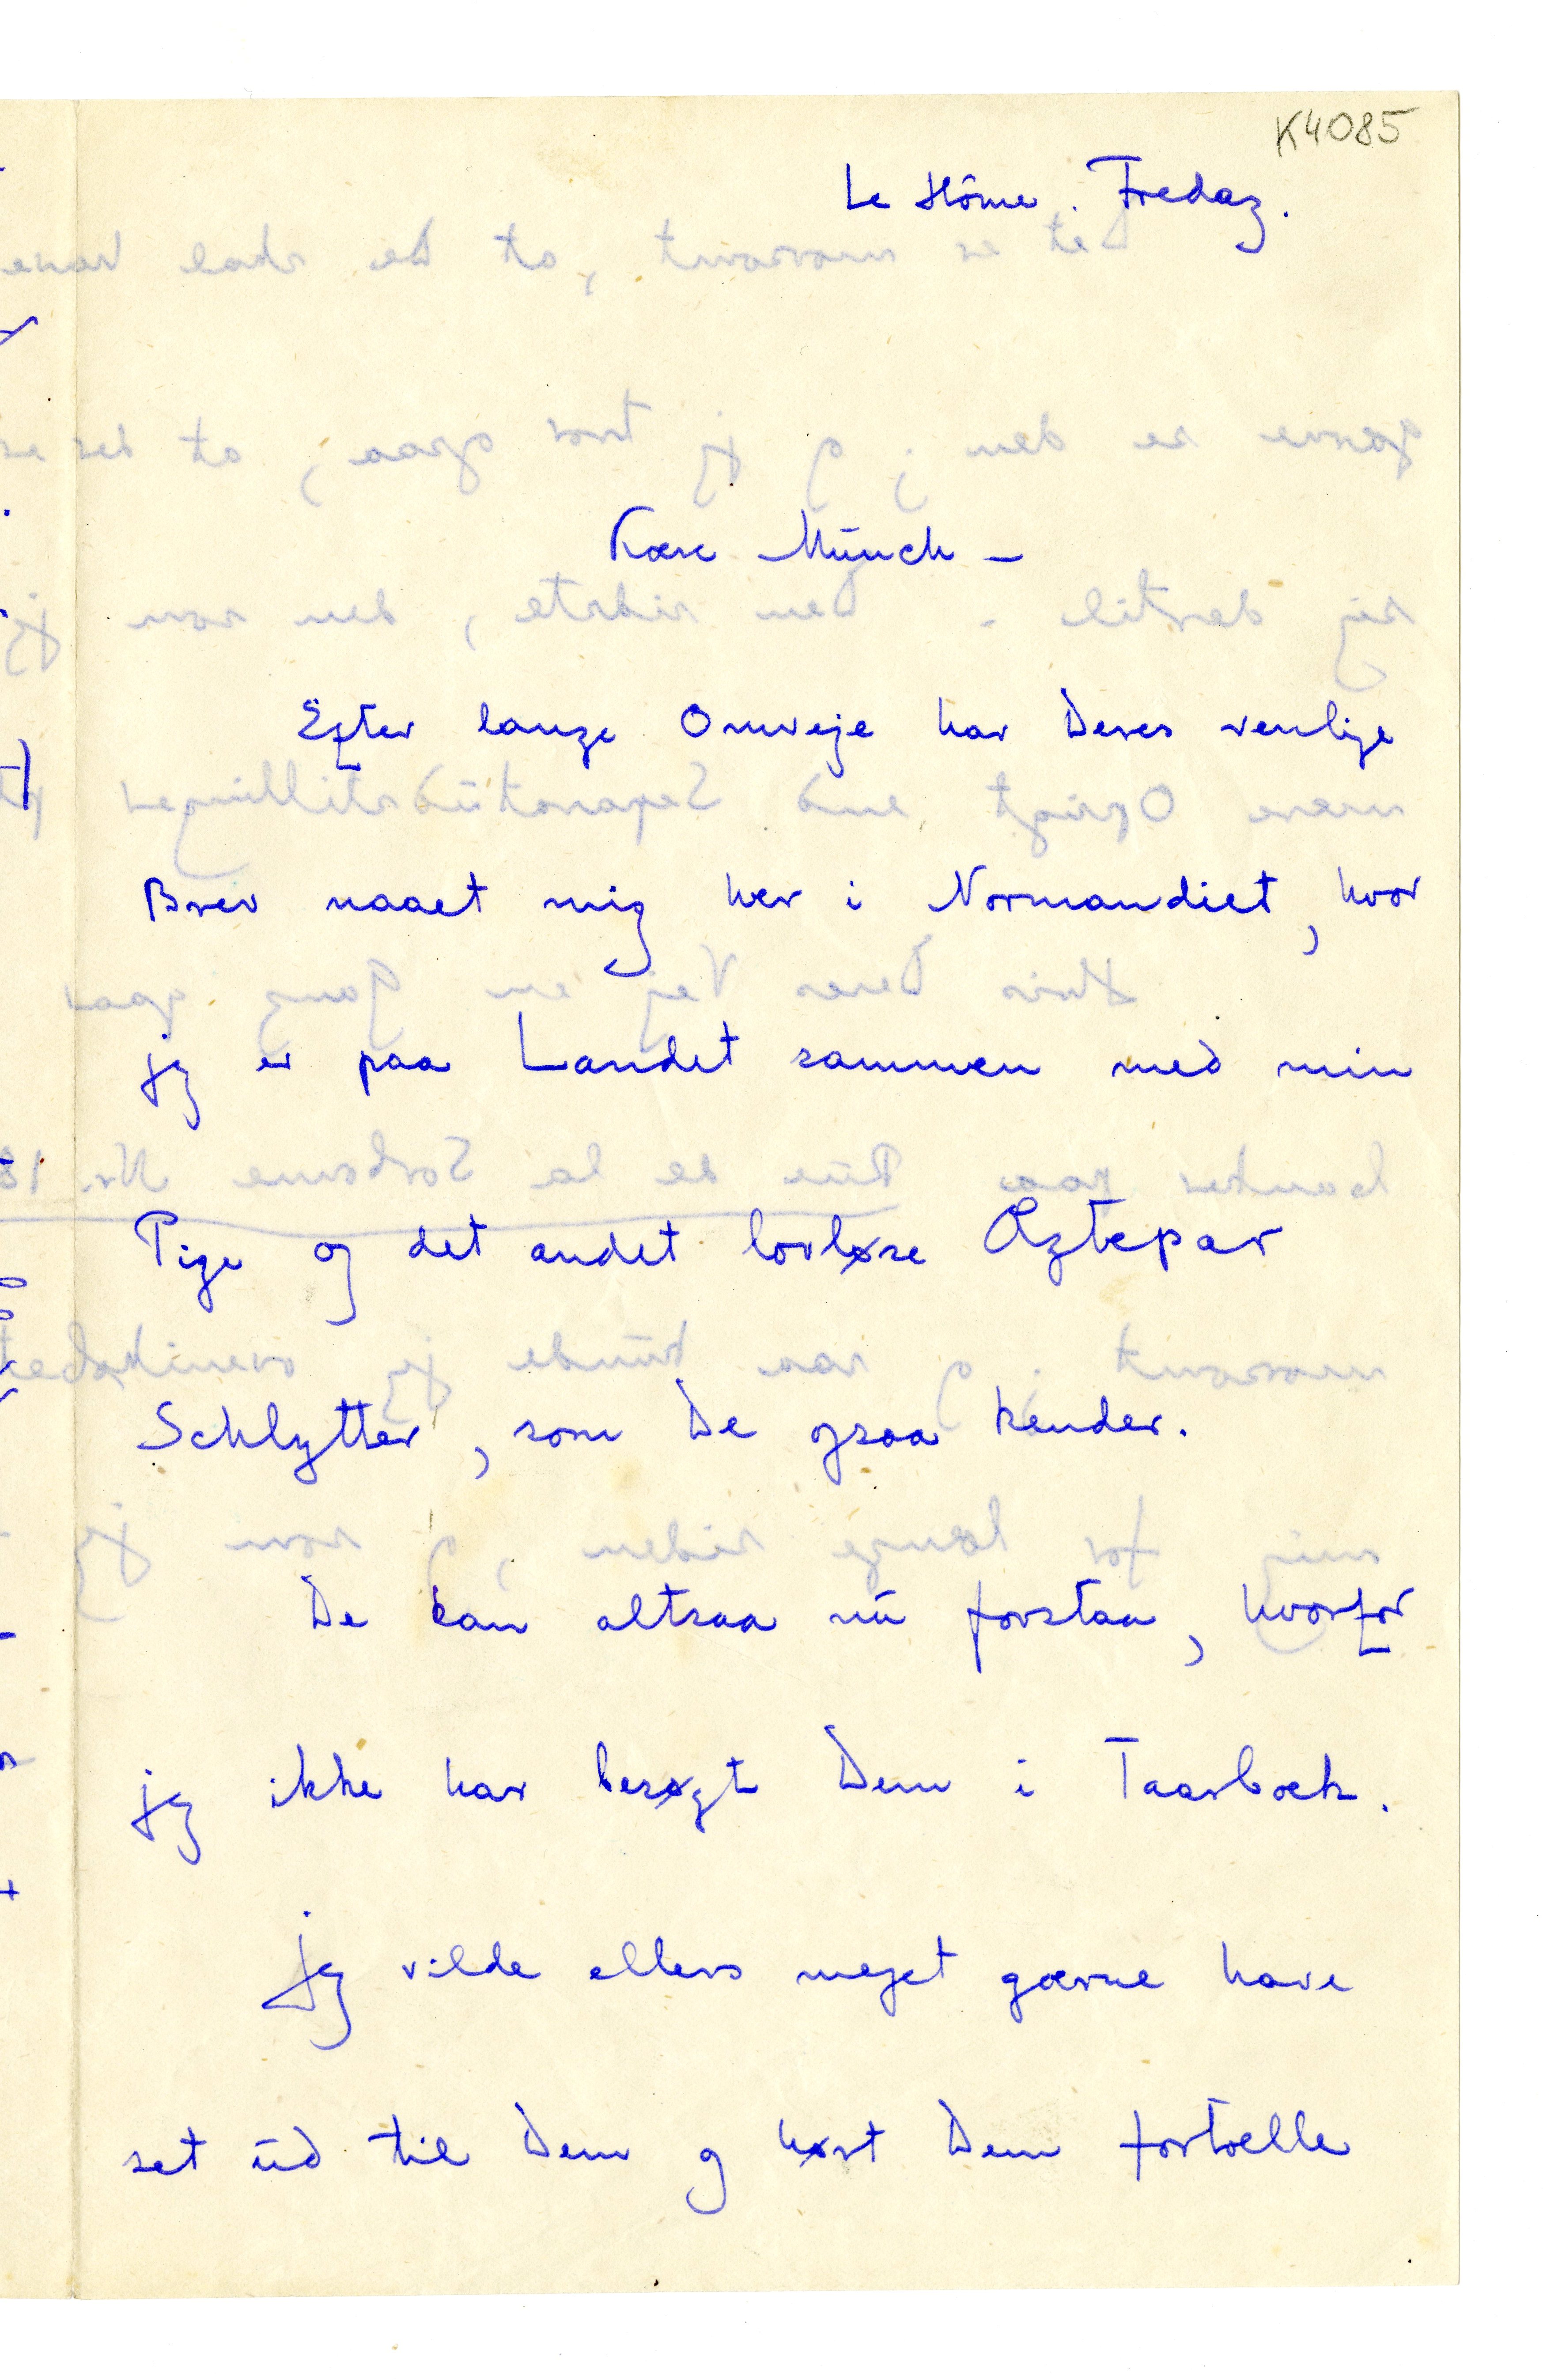 K4085
Le Hôme. Fredag.
Kære Münch –
Efter lange Omveje har Deres venlige
Brev naaet mig her i Normandiet, hvor
jeg er paa Landet sammen med min
Pige og det andet lovløse Ægtepar
Schlytter, som De ogsaa kender.
De kan altsaa nü forstaa, hvorfor
jeg ikke har besøgt Dem i Taarbæk.
Jeg vilde ellers meget gærne have
set üd til Dem og hørt Dem fortælle